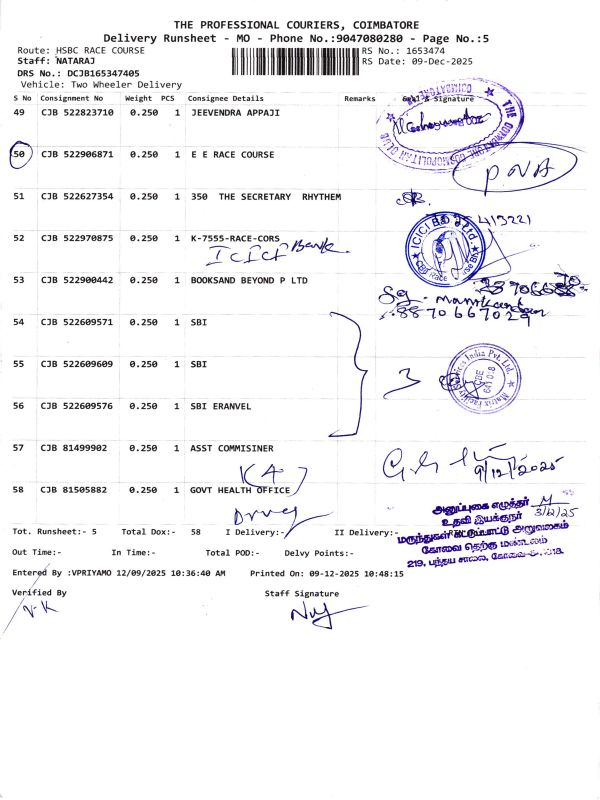 THE PROFESSIONAL COURIERS, COIMBATORE
Delivery Runsheet - MO - Phone No.:9047080280 - Page No.:5
Route: HSBC RACE COURSE RS No.: 1653474
Staff: NATARAJ RS Date: 09-Dec-2025
DRS No.: DCJB165347405
Vehicle: Two Wheeler Delivery
S No Consignment No Weight PCS Consignee Details Remarks Seal & Signature
49 CJB 522823710 0.250 1 JEEVENDRA APPAJI
THE COIMBATORE COSMOPOLITAN CLUB
50 CJB 522906871 0.250 1 E E RACE COURSE
PNA
51 CJB 522627354 0.250 1 350 THE SECRETARY RHYTHEM
413221
52 CJB 522970875 0.250 1 K-7555-RACE-CORS
ICICI Bank
ICICI Ltd.
53 CJB 522900442 0.250 1 BOOKSAND BEYOND P LTD
8870667029
54 CJB 522609571 0.250 1 SBI
55 CJB 522609609 0.250 1 SBI
3
Matrix Facility Services India Pvt. Ltd.
CBE
641018
56 CJB 522609576 0.250 1 SBI ERANVEL
57 CJB 81499902 0.250 1 ASST COMMISINER
9/12/2025
K4
58 CJB 81505882 0.250 1 GOVT HEALTH OFFICE
Drug
அனுப்புகை எழுத்தர்
3/12/25
உதவி இயக்குநர்
மருந்துகள் கட்டுப்பாட்டு அலுவலகம்
கோவை தெற்கு மண்டலம்
219, பந்தய சாலை, கோவை-
Tot. Runsheet:- 5 Total Dox:- 58 I Delivery:- II Delivery:-
Out Time:- In Time:- Total POD:- Delvy Points:-
Entered By :VPRIYAMO 12/09/2025 10:36:40 AM Printed On: 09-12-2025 10:48:15
Verified By Staff Signature
V-K